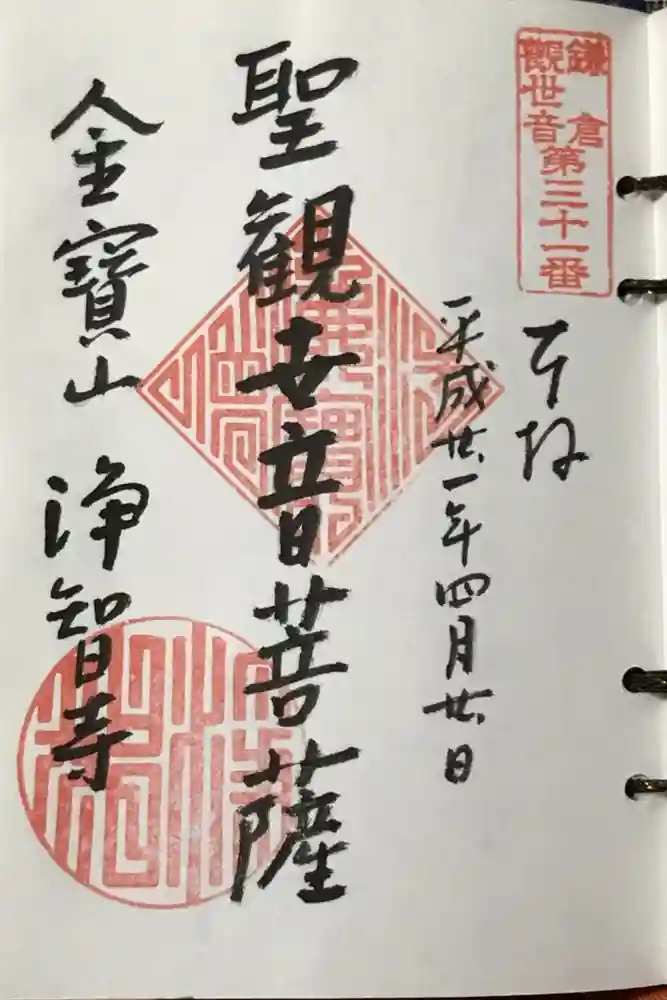 鎌倉
觀世音第三十一番
奉拝
平成廿一年四月廿日
聖観世音菩薩
金寶山 浄智寺